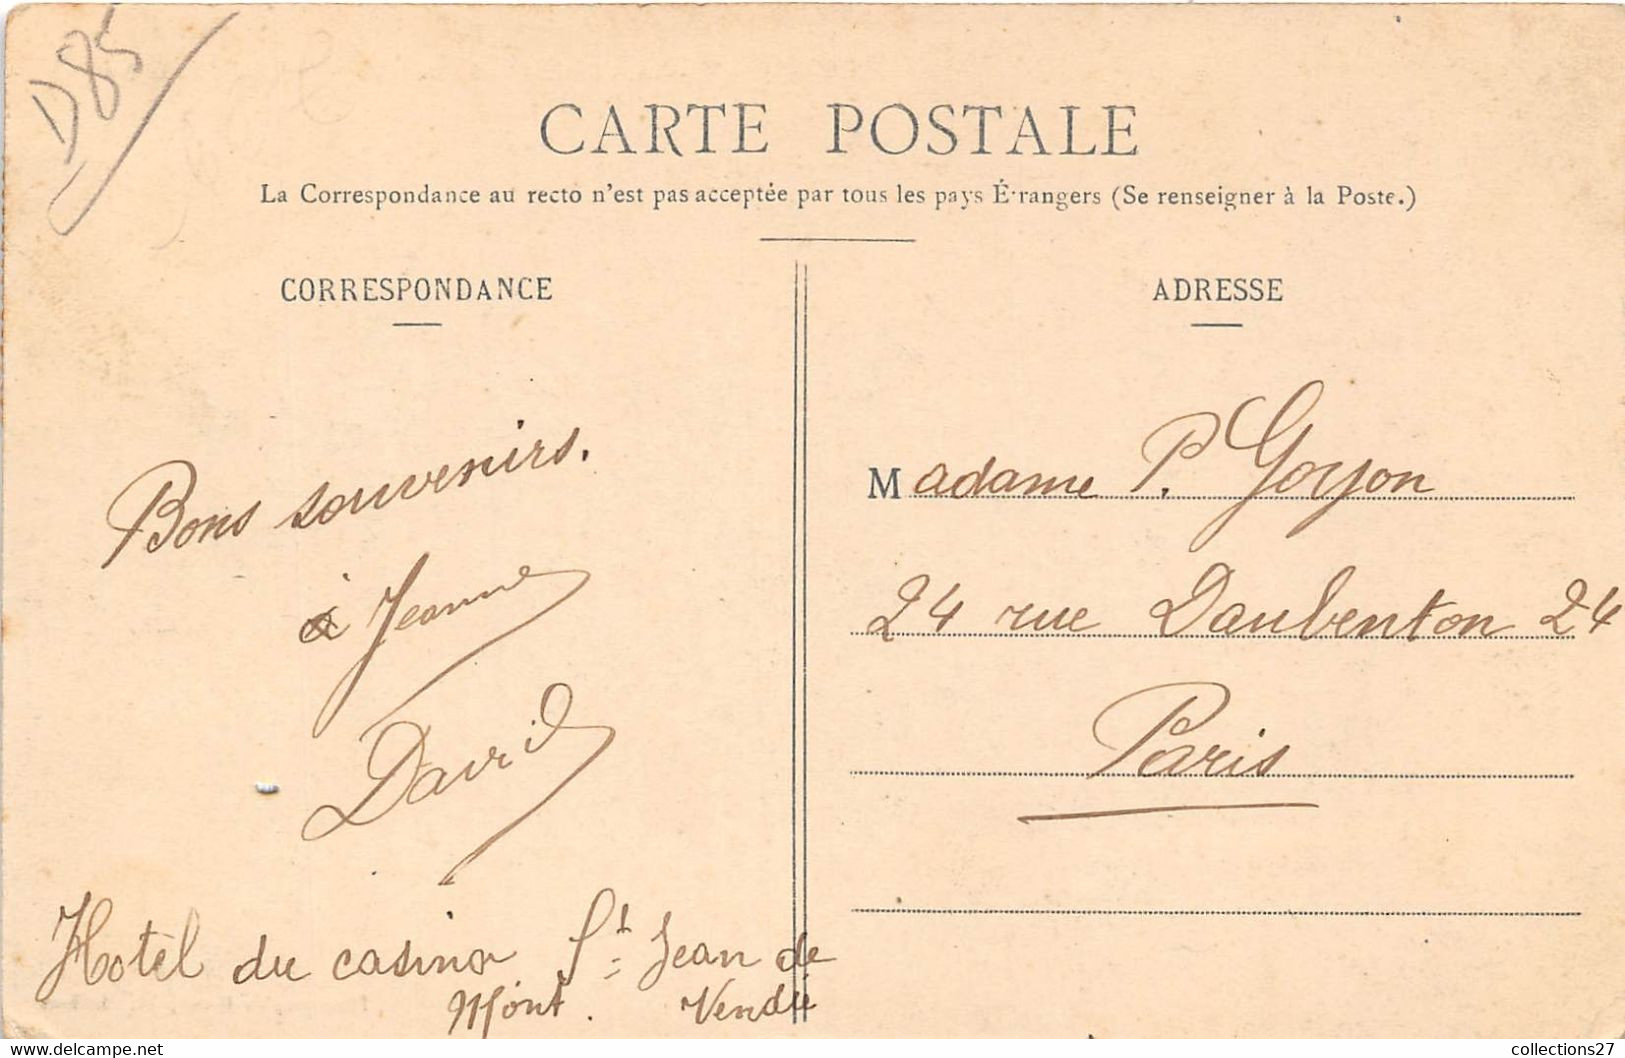 D85
CARTE POSTALE
La Correspondance au recto n'est pas acceptée par tous les pays Étrangers (Se renseigner à la Poste.)
CORRESPONDANCE
Bons souvenirs.
à Jeanne
David
Hotel du casino St Jean de
Mont. Vendée
ADRESSE
Madame P. Goyon
24 rue Daubenton 24
Paris
collections27